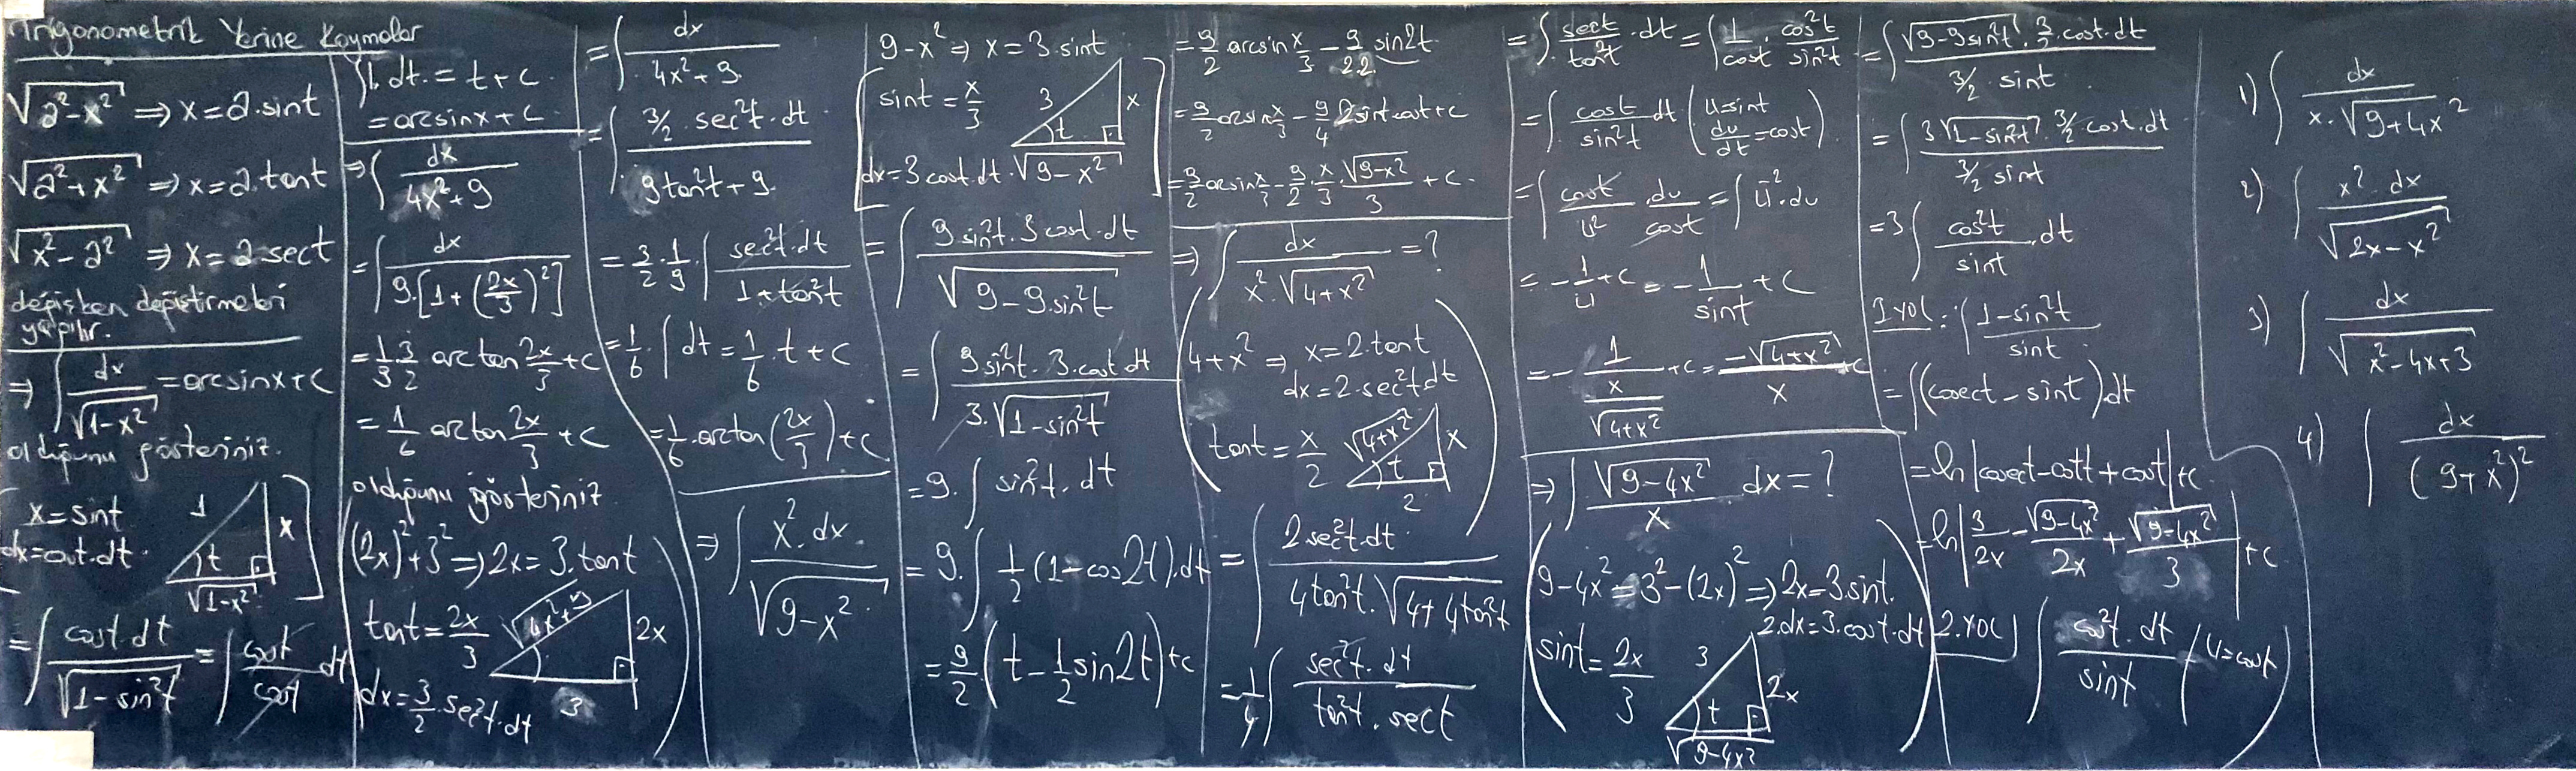 Trigonometrik Yerine Koymalar
√(a²-x²) ⇒ x = a.sint
√(a²+x²) ⇒ x = a.tant
√(x²-a²) ⇒ x = a sect
değişken değiştirmeleri
yapılır.
⇒ ∫ dx/√(1-x²) = arcsinx + c
olduğunu gösteriniz.
x = sint
dx = cost.dt
1
x
t
√(1-x²)
= ∫ cost.dt/√(1-sin²t) = ∫ cost/cost dt
∫1.dt. = t + c.
= arcsinx + c
⇒ ∫ dx/(4x²+9)
= ∫ dx/(9.[1+(2x/3)²])
= 1/9 3/2 arctan 2x/3 + c
= 1/6 arctan 2x/3 + c
olduğunu gösteriniz
(2x)²+3² ⇒ 2x = 3.tant
tant = 2x/3
√(4x²+9)
2x
3
dx = 3/2.sec²t.dt
= ∫ dx/(4x²+9)
= ∫ (3/2.sec²t.dt)/(9tan²t+9)
= 3/2.1/9.∫ sec²t.dt/(1+tan²t)
= 1/6.∫dt = 1/6.t + c
= 1/6.arctan(2x/3) + c
⇒ ∫ x².dx/√(9-x²)
9-x² ⇒ x = 3.sint
sint = x/3
3
x
t
√(9-x²)
dx = 3cost.dt
= ∫ 9sin²t.3cost.dt/√(9-9.sin²t)
= ∫ 9sin²t.3.cost dt/(3.√(1-sin²t))
= 9.∫ sin²t.dt
= 9.∫ 1/2(1-cos2t).dt
= 9/2.(t - 1/2 sin2t) + c
= 9/2 arcsin x/3 - 9/2.2 sin2t
= 9/2 arcsin x/3 - 9/4 2sint cost + c
= 9/2 arcsin x/3 - 9/2.x/3.√(9-x²)/3 + c.
⇒ ∫ dx/(x².√(4+x²)) = ?
4+x² ⇒ x = 2.tant
dx = 2.sec²t dt
tant = x/2
√(4+x²)
x
t
2
= ∫ 2sec²t.dt/(4tan²t.√(4+4tan²t))
= 1/4 ∫ sec²t.dt/(tan²t.sect)
= ∫ sect/tan²t.dt = ∫ 1/cost.cos²t/sin²t
= ∫ cost/sin²t dt (u=sint du/dt=cost)
= ∫ cost/u².du/cost = ∫ u⁻².du
= -1/u + c = -1/sint + c
= -1/(x/√(4+x²)) + c = -√(4+x²)/x + c
⇒ ∫ √(9-4x²)/x dx = ?
9-4x² = 3²-(2x)² ⇒ 2x = 3.sint.
2.dx = 3.cost.dt
sint = 2x/3
3
2x
t
√(9-4x²)
= ∫ √(9-9sin²t).3/2.cost.dt/(3/2.sint)
= ∫ 3√(1-sin²t).3/2.cost.dt/(3/2 sint)
= 3∫ cos²t/sint.dt
1.YOL: ∫ (1-sin²t)/sint
= ∫(cosect - sint)dt
= ln|cosect - cott + cost| + c
= ln|3/2x - √(9-4x²)/2x + √(9-4x²)/3| + c
2.YOL ∫ cos²t.dt/sint (u=cost)
1) ∫ dx/(x.√(9+4x²))
2) ∫ x².dx/√(2x-x²)
3) ∫ dx/√(x²-4x+3)
4) ∫ dx/(9+x²)²